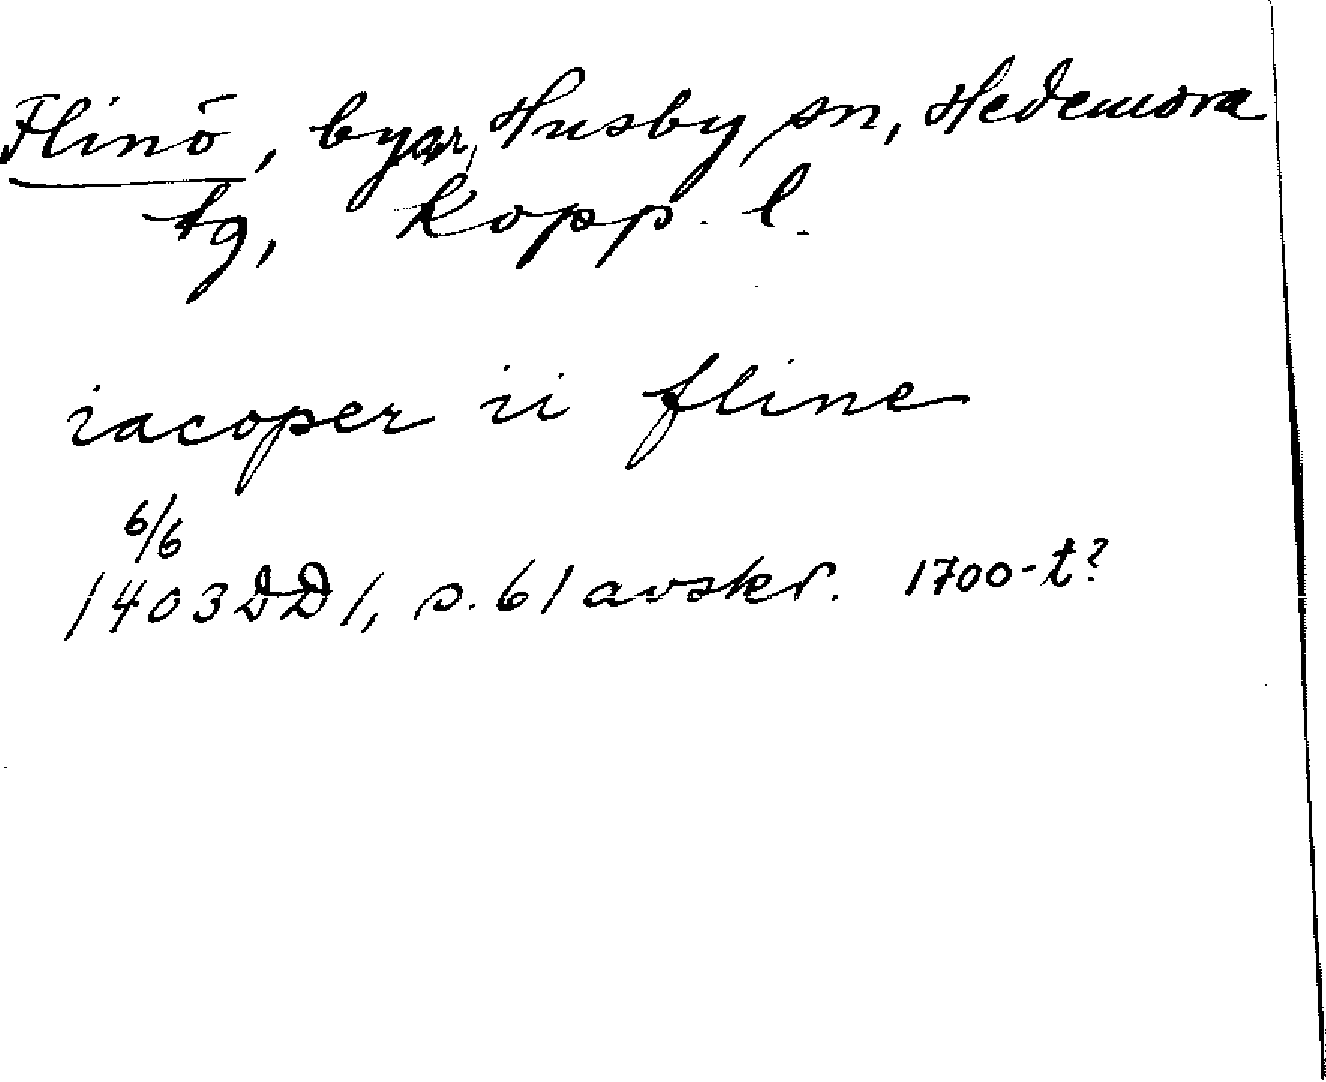 Flinö, byar, Husby sn, Hedemora
tg, Kopp. l.
iacoper ii fline
6/6
1403 DD 1, s. 61 avskr. 1700-t?